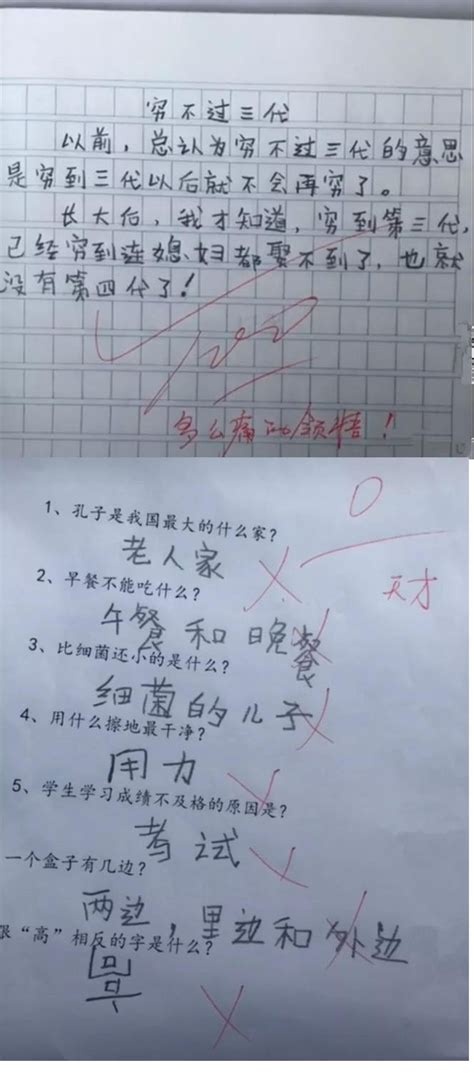 穷不过三代
以前，总认为穷不过三代的意思
是穷到三代以后就不会再穷了。
长大后，我才知道，穷到第三代，
已经穷到连媳妇都娶不到了，也就
没有第四代了！
100
多么痛的领悟！
0
1、孔子是我国最大的什么家？
老人家
天才
2、早餐不能吃什么？
午餐和晚餐
3、比细菌还小的是什么？
细菌的儿子
4、用什么擦地最干净？
用力
5、学生学习成绩不及格的原因是？
考试
一个盒子有几边？
两边，里边和外边
跟“高”相反的字是什么？